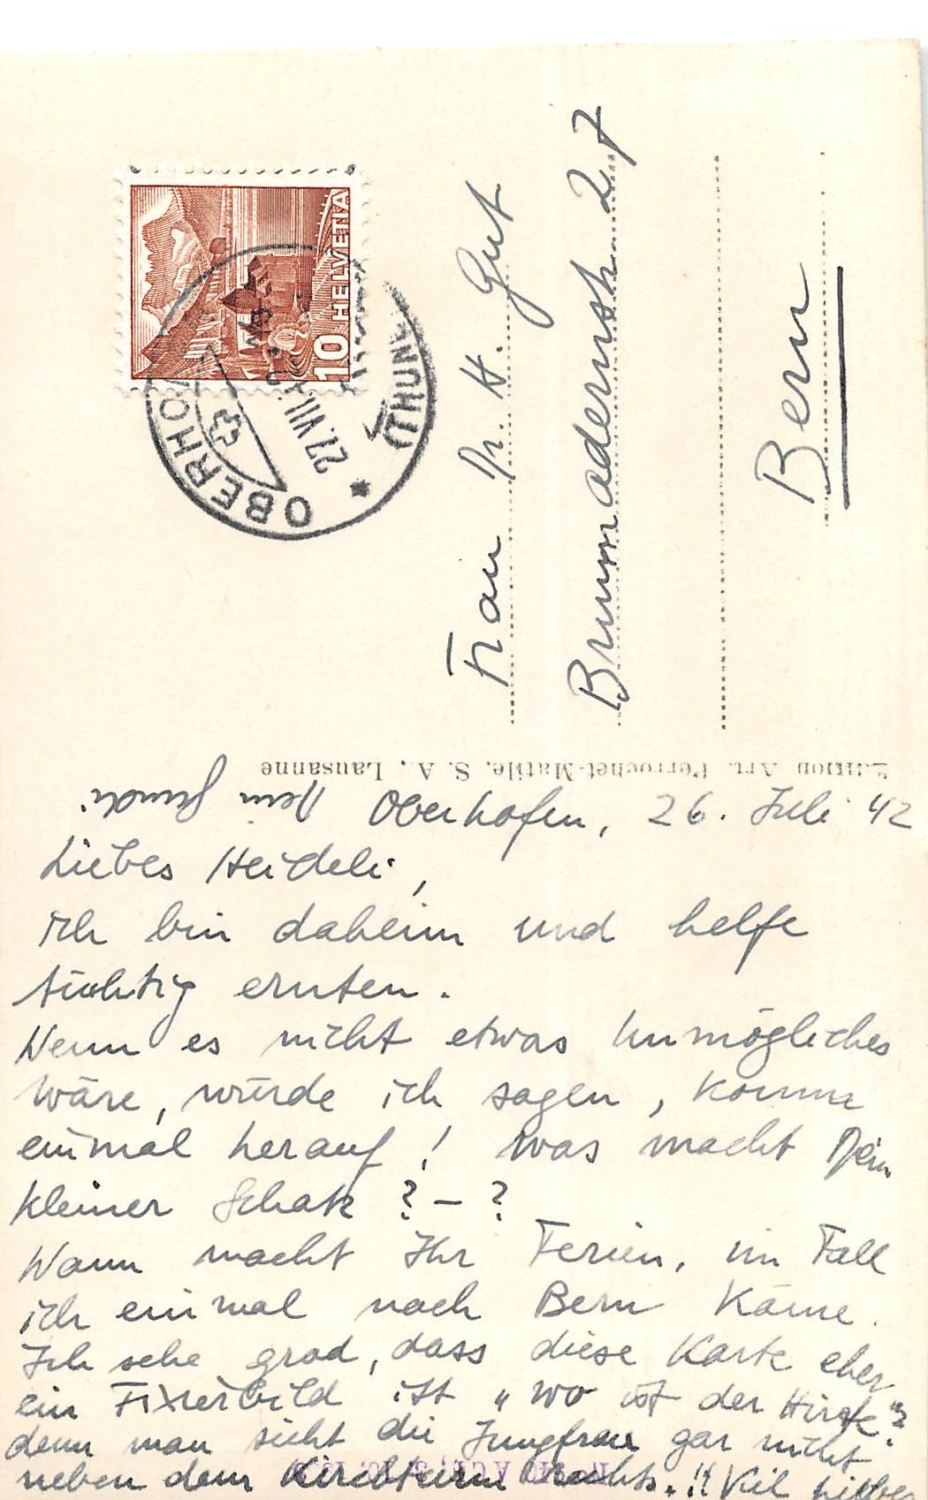 10 HELVETIA
OBERHOFEN
(THUNE
27.VII.42
Frau Dr. H. Gut
Brunnadernstr. 27
Bern
Edition Art. Perrochet-Matile, S. A., Lausanne
Oberhofen, 26. Juli 42
Liebes Heideli,
Ich bin daheim und helfe
tüchtig ernten.
Wenn es nicht etwas Unmögliches
wäre, würde ich sagen, komm
einmal herauf! Was macht Dein
kleiner Schatz? – ?
Wann macht Ihr Ferien, im Fall
ich einmal nach Bern käme.
Ich sehe grad, dass diese Karte eher
ein Fixierbild ist „wo ist der Hirte"?
denn man sieht die Jungfrau gar nicht
neben dem Kirchturm rechts.!! Viel
Dein